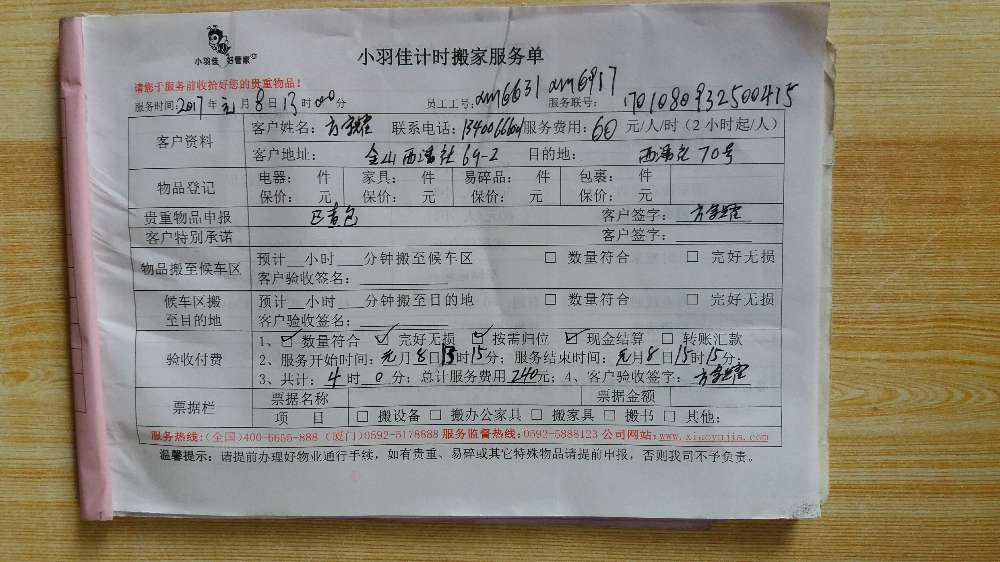 小羽佳 好管家
小羽佳计时搬家服务单
请您于服务前收拾好您的贵重物品！
服务时间:2017年元月8日13时00分 员工工号:xm6631 xm6917 服务联号: 701080932500415
客户资料 客户姓名：方 联系电话： 服务费用：60元/人/时（2小时起/人）
客户地址： 金山西潘社69-2 目的地： 西潘社70号
物品登记 电器： 件 家具： 件 易碎品： 件 包裹： 件
保价： 元 保价： 元 保价： 元 保价： 元
贵重物品申报 已查包 客户签字：方
客户特别承诺 客户签字：
物品搬至候车区 预计 小时 分钟搬至候车区 □ 数量符合 □ 完好无损
客户验收签名：
候车区搬至目的地 预计 小时 分钟搬至目的地 □ 数量符合 □ 完好无损
客户验收签名：
验收付费 1、☑数量符合 ☑完好无损 ☑按需归位 ☑现金结算 □ 转账汇款
2、服务开始时间：元月8日13时15分；服务结束时间：元月8日15时15分；
3、共计：4时0分；总计服务费用240元；4、客户验收签字：方
票据栏 票据名称 票据金额
项 目 □ 搬设备 □ 搬办公家具 □ 搬家具 □ 搬书 □ 其他：
服务热线：（全国）400-6655-888（厦门）0592-5178888 服务监督热线：0592-5888123 公司网站：www.xiaoyujia.com
温馨提示：请提前办理好物业通行手续，如有贵重、易碎或其它特殊物品请提前申报，否则我司不予负责。